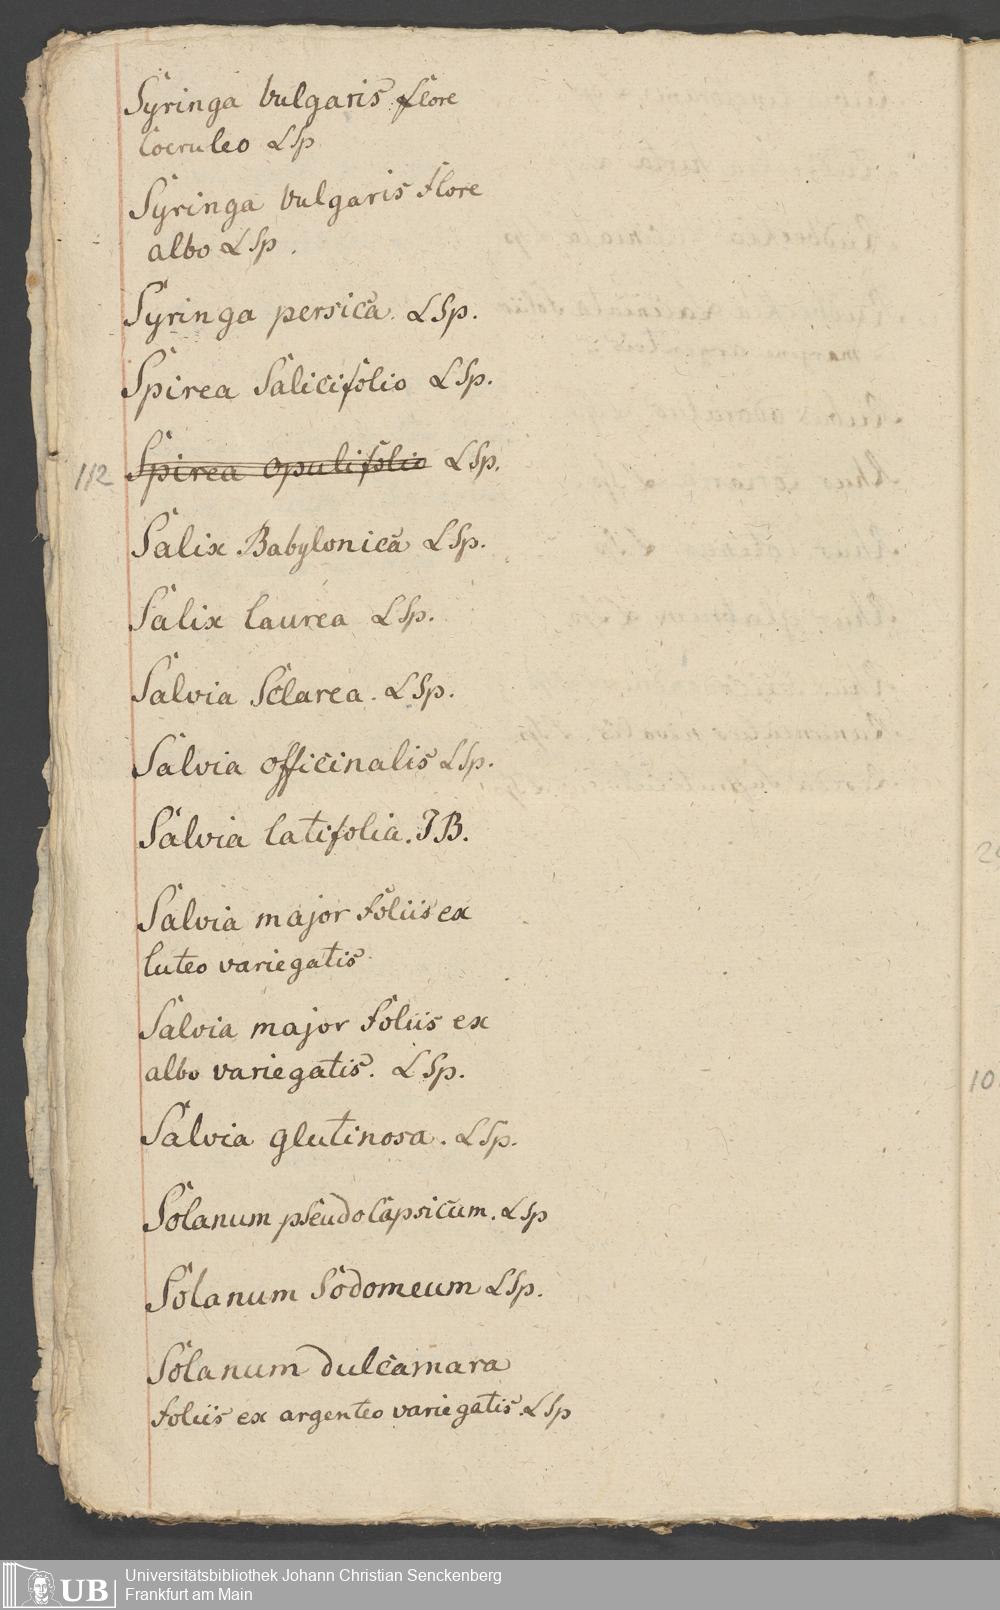 Syringa vulgaris flore
Coeruleo LSp
Syringa vulgaris flore
albo LSp.
Syringa persica. LSp.
Spirea Salicifolio LSp.
112 Spirea opulifolio LSp.
Salix Babylonica LSp.
Salix laurea LSp.
Salvia Sclarea. LSp.
Salvia officinalis LSp.
Salvia latifolia. JB.
Salvia major foliis ex
luteo variegatis
Salvia major foliis ex
albo variegatis. LSp.
Salvia glutinosa. LSp.
Solanum pseudoCapsicum. LSp
Solanum Sodomeum LSp.
Solanum dulcamara
foliis ex argenteo variegatis. LSp
10
UB
Universitätsbibliothek Johann Christian Senckenberg
Frankfurt am Main